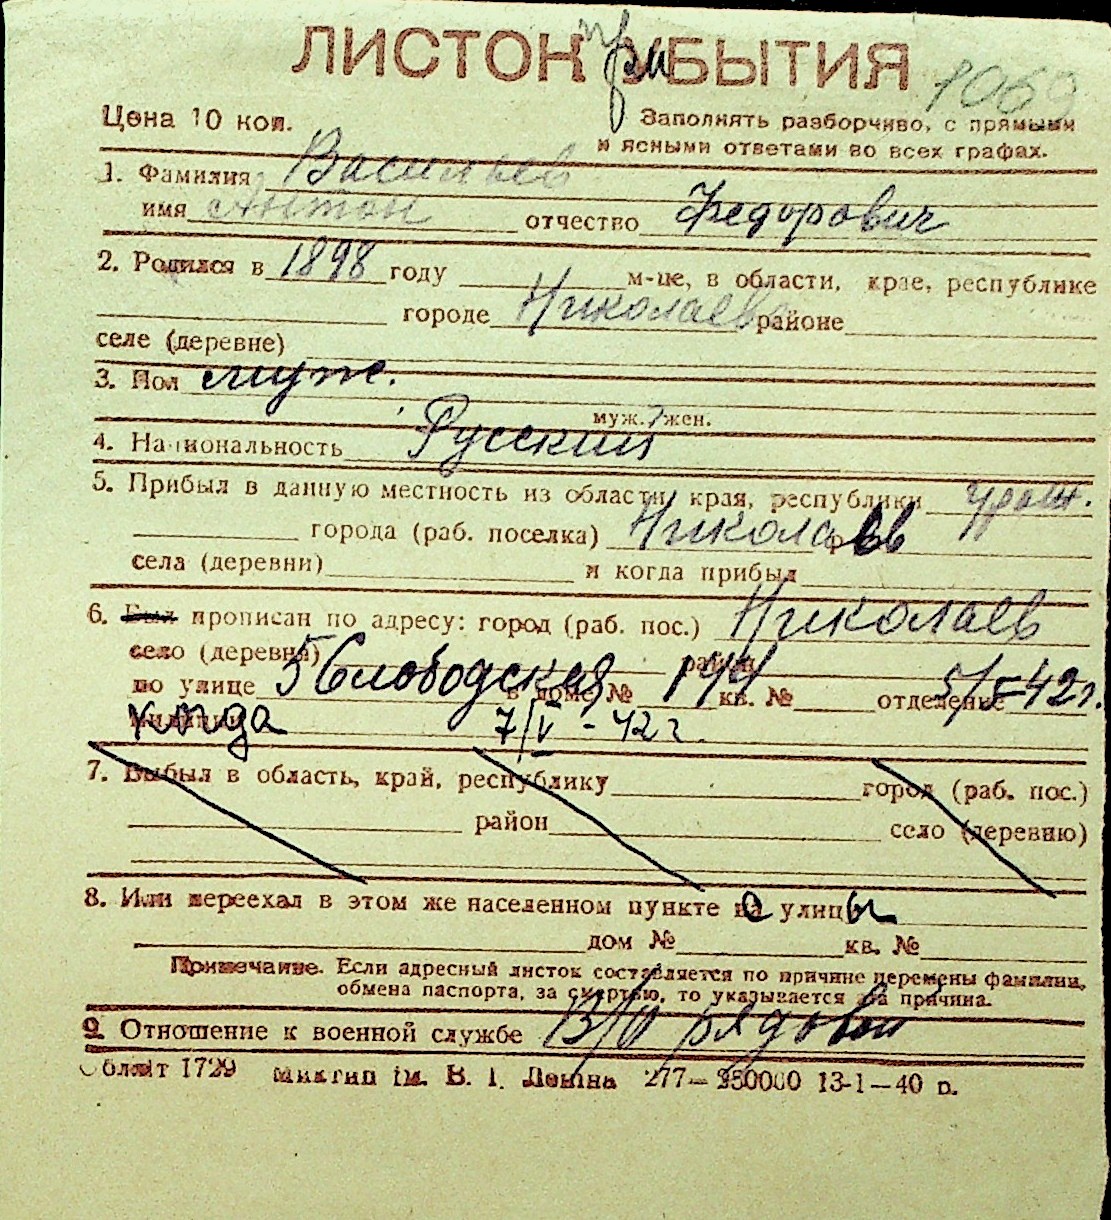 ЛИСТОК при УБЫТИЯ
1069
Цена 10 коп.
Заполнять разборчиво, с прямыми
и ясными ответами во всех графах.
1. Фамилия Васильев
имя Антон отчество Федорович
2. Родился в 1898 году м-це, в области, крае, республике
городе Николаев районе
селе (деревне)
3. Пол муж.
муж. жен.
4. Национальность Русский
5. Прибыл в данную местность из области, края, республики урож.
города (раб. поселка) Николаев
села (деревни) и когда прибыл
6. Был прописан по адресу: город (раб. пос.) Николаев
село (деревня) район
по улице 5 Слободская в доме № 144 кв. № отделение 5/V-42г.
милиции когда 7/V-42г.
7. Выбыл в область, край, республику город (раб. пос.)
район село (деревню)
8. Или переехал в этом же населенном пункте на улицы
дом № кв. №
Примечание. Если адресный листок составляется по причине перемены фамилии,
обмена паспорта, за смертью, то указывается эта причина.
9. Отношение к военной службе В/о рядовой
Облліт 1729 Миктип ім. В. І. Леніна 277—250000 13-1—40 р.